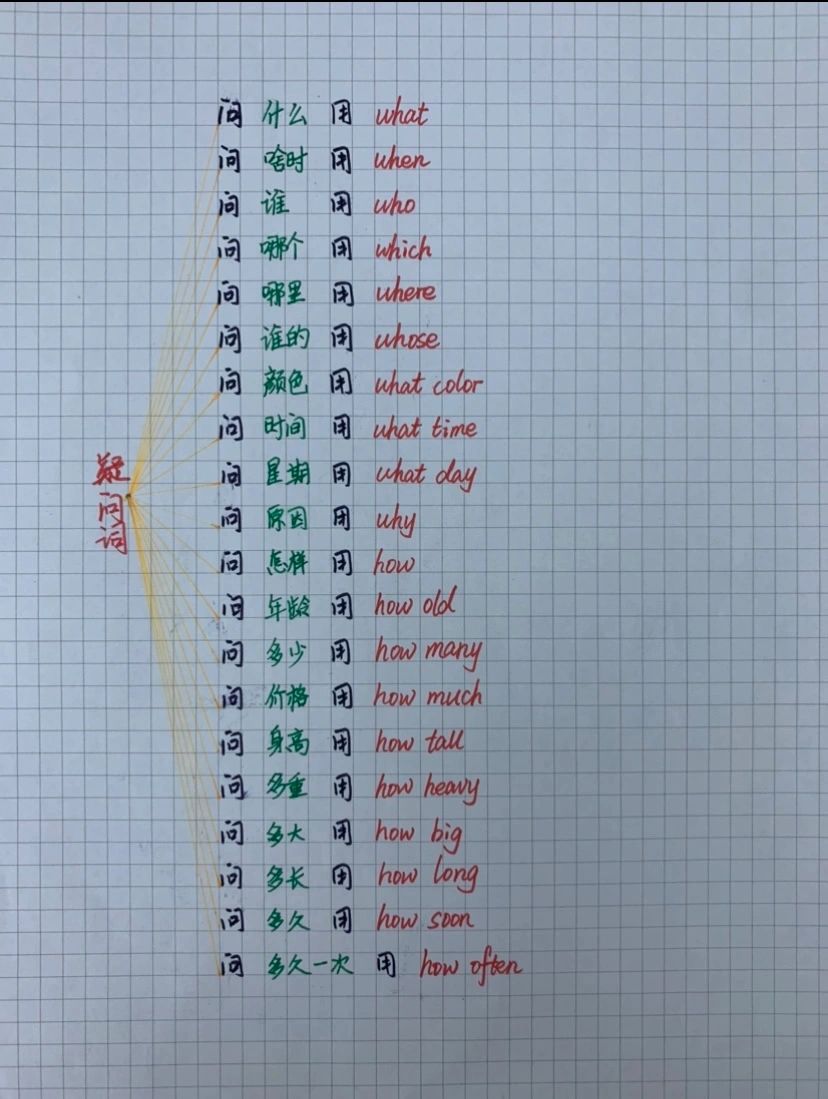 问 什么 用 what
问 啥时 用 when
问 谁 用 who
问 哪个 用 which
问 哪里 用 where
问 谁的 用 whose
问 颜色 用 what color
问 时间 用 what time
问 星期 用 what day
问 原因 用 why
问 怎样 用 how
问 年龄 用 how old
问 多少 用 how many
问 价格 用 how much
问 身高 用 how tall
问 多重 用 how heavy
问 多大 用 how big
问 多长 用 how long
问 多久 用 how soon
问 多久一次 用 how often
疑问词